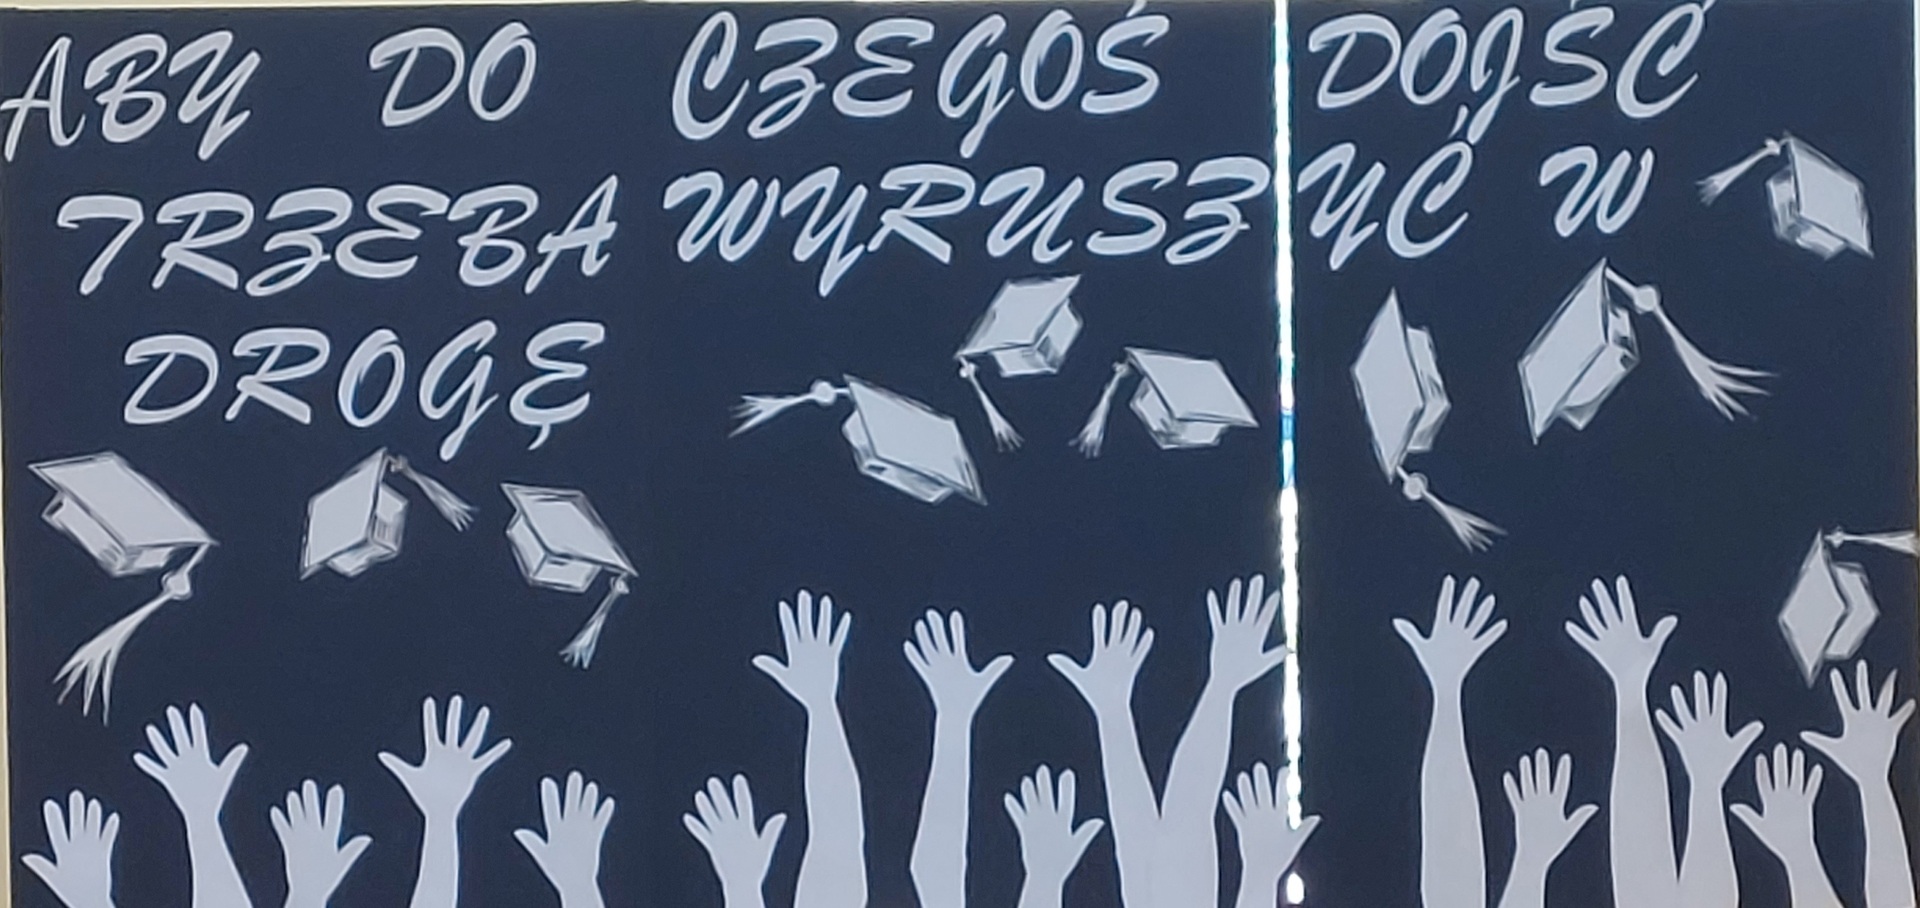 ABY DO CZEGOŚ DOJŚĆ
TRZEBA WYRUSZYĆ W
DROGĘ